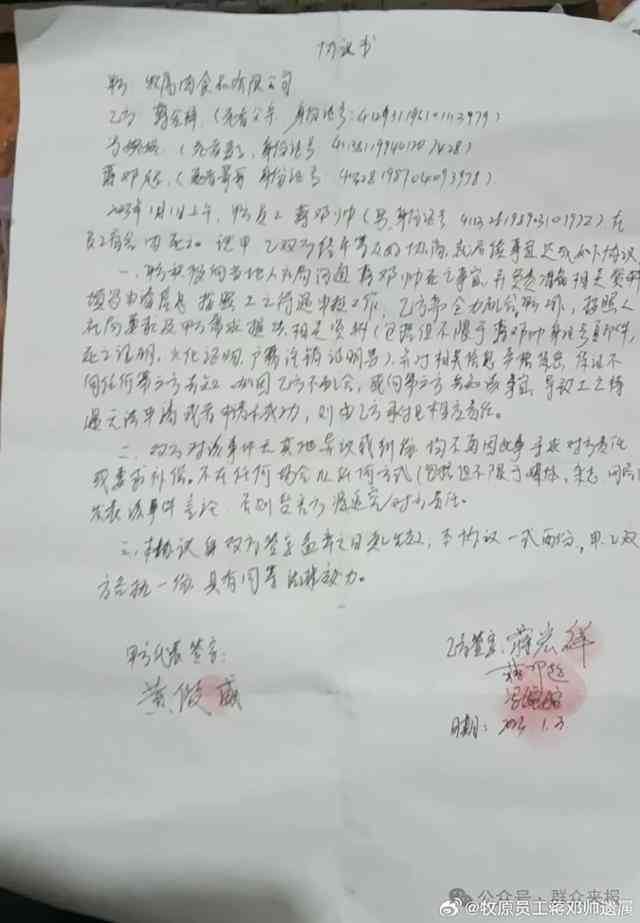 协议书
甲方: 牧原肉食品有限公司
乙方 蒋宏祥 (死者父亲 身份证号:
(死者妻子, 身份证号
蒋邓超, (死者哥哥 身份证号
1月1日上午, 甲方员工蒋邓帅 (男, 身份证号 在
员工宿舍内死亡, 现甲乙双方经平等友好协商, 就后续事宜达成如下协议,
一、甲方积极向当地人社局沟通蒋邓帅死亡事宜, 并负责准备相关资料
按照工亡待遇申报工作, 乙方需全力配合甲方, 按照人
社局要求及甲方需求提供相关资料 (包括但不限于蒋邓帅身份证复印件,
死亡证明, 火化证明, 户籍注销证明等) 并对相关信息严格保密, 保证不
向任何第三方告知, 如因乙方不配合, 或向第三方告知该事宜, 导致工亡待
遇无法申请或者申请未成功, 则由乙方承担相应责任。
二、双方对该事件无其他异议或纠纷, 均不再因此事追究对方责任
或要求补偿。不在任何场合以任何方式 (包括但不限于媒体, 杂志, 网络)
发表该事件言论, 否则 追究对方责任。
三、本协议自双方签字盖章之日起生效, 本协议一式两份, 甲、乙双
方各执一份, 具有同等法律效力。
甲方代表签字:
黄俊
乙方签字: 蒋宏祥
蒋邓超
日期: 1.3
公众号 · 群众来报
@牧原员工蒋邓帅遗属